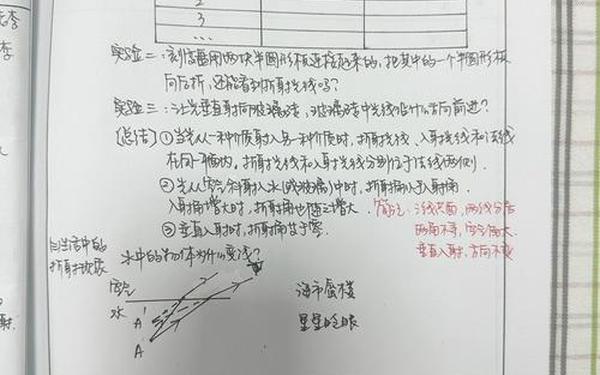 2
3
…
实验二:刻度盘用两块半圆形板连接起来的,把其中的一个半圆形板
向后折,还能看到折射光线吗?
实验三:让光垂直射向玻璃砖,玻璃砖中光线沿什么方向前进?
[总结]①当光从一种介质射入另一种介质时,折射光线、入射光线和法线
在同一平面内,折射光线和入射光线分别位于法线两侧.
②光从空气斜射入水(或玻璃)中时,折射角小于入射角.
入射角增大时,折射角也随之增大.
③垂直入射时,折射角等于零.
简记:三线共面,两线分居
两角不等,空气角大
垂直入射,方向不变
三、生活中的
折射现象
水中的物体为什么变浅?
空气
水
A'
A
海市蜃楼
星星眨眼